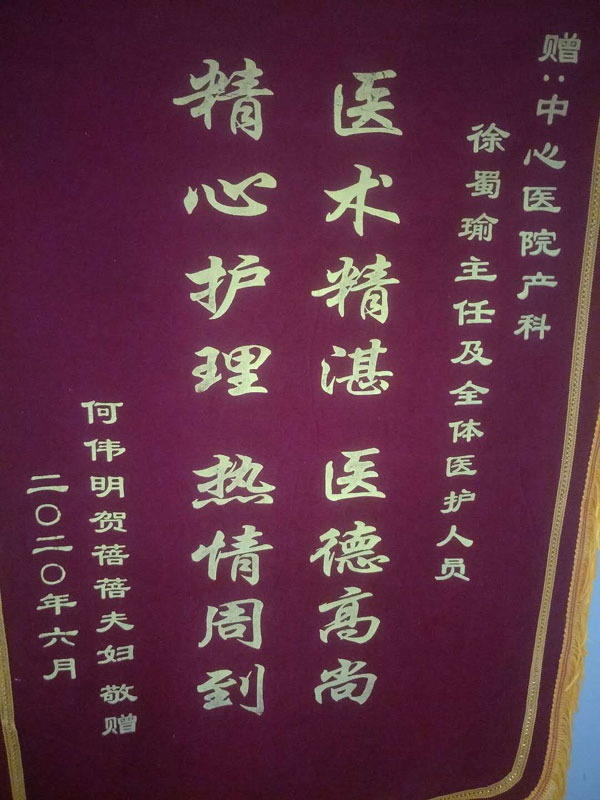 赠:中心医院产科
徐蜀瑜主任及全体医护人员
医术精湛 医德高尚
精心护理 热情周到
何伟明贺蓓蓓夫妇 敬赠
二〇二〇年六月